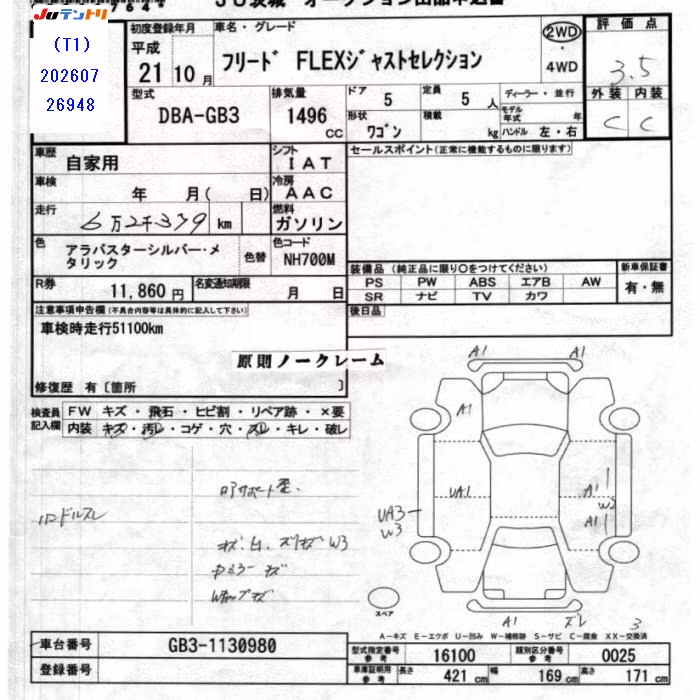 JU茨城 オークション出品申込書
Juテントリ
(T1)
202607
26948
初度登録年月
平成
21 10 月
車名・グレード
フリード FLEXジャストセレクション
2WD
・
4WD
評価点
3.5
外装 内装
C C
型式
DBA-GB3
排気量
1496 CC
ドア 5
定員 5 人
形状 ワゴン
積載 kg
ディーラー・並行
モデル年式 年
ハンドル 左・右
車歴 自家用
シフト IAT
車検 年 月( 日)
冷房 AAC
走行 6万2千339 km
燃料 ガソリン
セールスポイント(正常に機能するものに限ります)
色 アラバスターシルバー・メタリック
色替
色コード NH700M
R券 11,860 円
名変通知期限 月 日
装備品 (純正品に限り○をつけてください)
PS PW ABS エアB AW
SR ナビ TV カワ
新車保証書
有・無
後日品
注意事項申告欄(不具合内容等は具体的に記入して下さい)
車検時走行51100km
原則ノークレーム
修復歴 有〔箇所 〕
検査員記入欄
FW キズ・飛石・ヒビ割・リペア跡・×要
内装 キズ・汚レ・コゲ・穴・スレ・キレ・破レ
ハンドルスレ
ロアサポート歪
キズ凹、スリキズW3
Fミラーキズ
Wキャップキズ
A1 A1
A1
UA1
UA3
W3
A1
W2
A1
スペア
A1 ズレ 3
A-キズ E-エクボ U-凹み W-補修跡 S-サビ C-腐食 XX-交換済
車台番号 GB3-1130980
登録番号
型式指定番号 参考 16100
類別区分番号 参考 0025
車庫証明用 参考 長さ 421 cm 幅 169 cm 高さ 171 cm